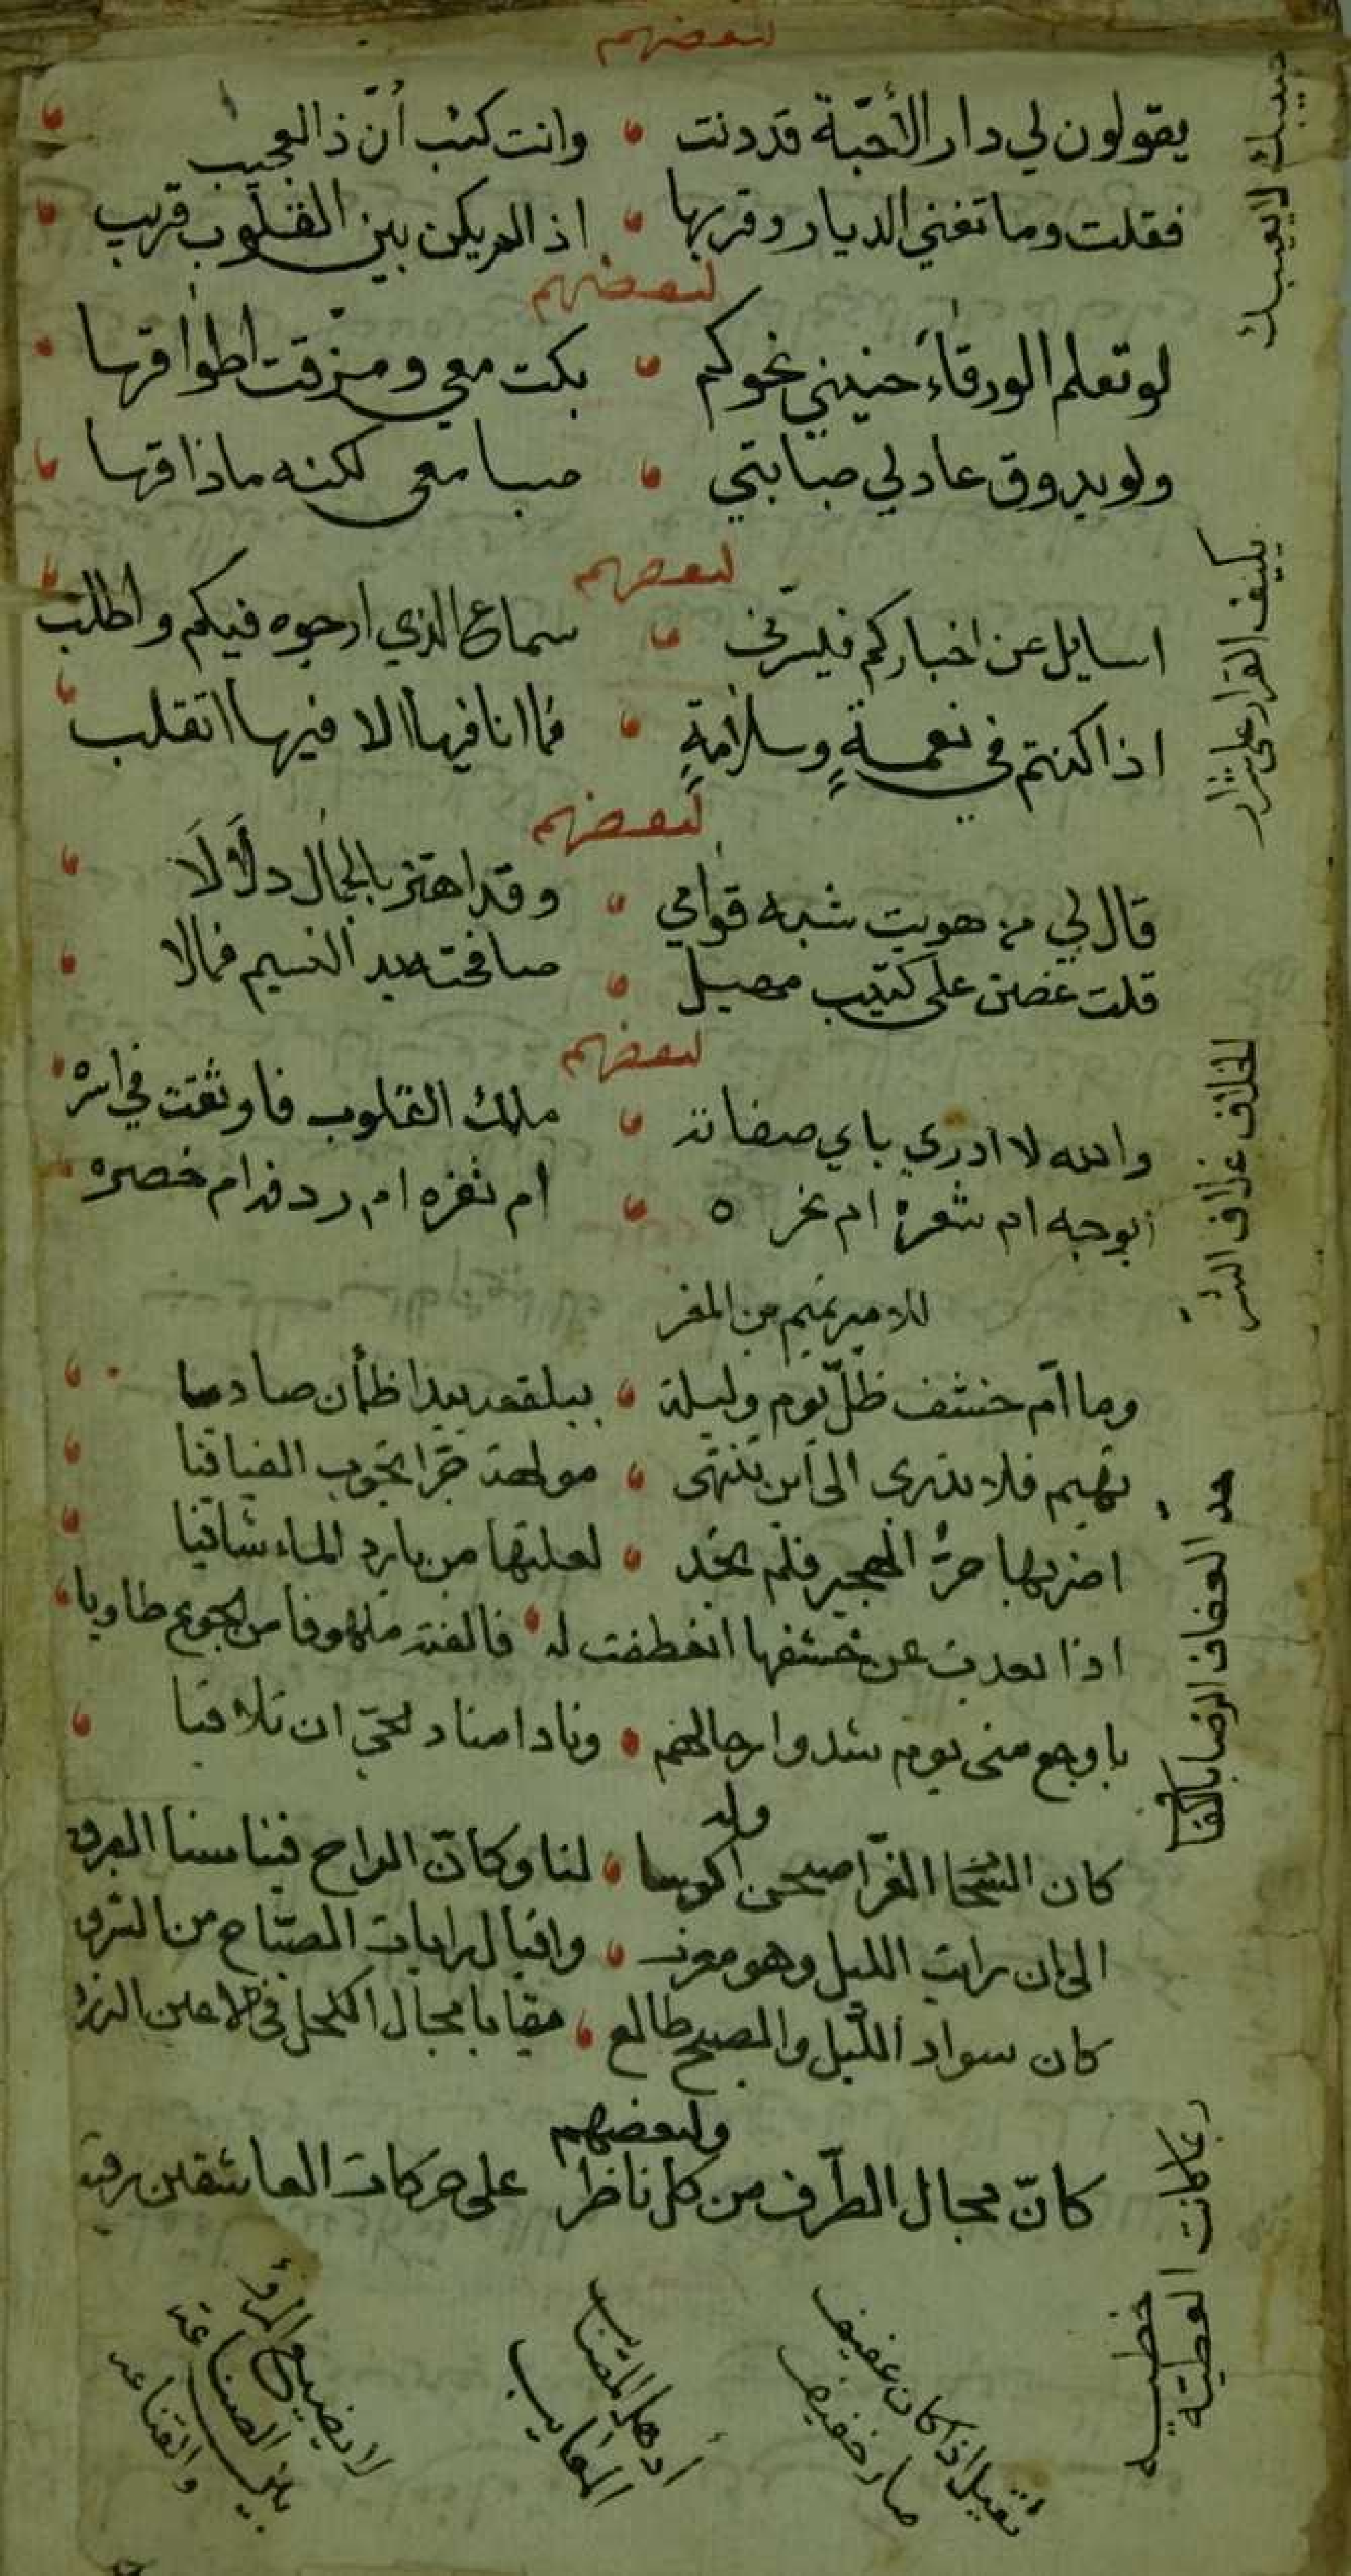 لبعضهم
يقولون لي دار الأحبّة قد دنت وانت كئب أنّ ذا لعجيب
فقلت وما تغني الديار وقربها اذا لم يكن بين القلوب قريب
لبعضهم
لو تعلم الورقاء حنيني نحوكم بكت معي ومزّقت اطواقها
ولو يذوق عاذلي صبابتي صبا معي لكنه ما ذاقها
لبعضهم
اسايل عن اخباركم فيسرّني سماع الذي ارجوه فيكم واطلب
اذا كنتم في نعمةٍ وسلامةٍ فما انا فيها الا فيها اتقلب
لبعضهم
قال لي من هويت شبه قوامي وقد اهتز بالجمال دلالَا
قلت غصن على كثيب مهيل صافحته يد النسيم فمالا
لبعضهم
والله لا ادري باي صفاته ملك القلوب فاوثقت في اسره
أبوجهه ام شعره ام نحره أم ثغره ام ردفه ام خصره
للامير تميم بن المعز
وما أمّ خشف ظلّ يوم وليلة ببلقعة بيدا ظمأن صاديا
تهيم فلا تدرى الى أين تنتهى مولهة حرّا تجوب الفيافيا
اضر بها حرُّ الهجير فلم تجد لعلتها من بارد الماء شافيا
اذا بعدت عن خشفها انعطفت له فالفته ملهوفا من الجوع طاويا
باوجع منى يوم شدوا رحالهم ونادا مناد لحىّ ان تلاقيا
وله
كان السحا الغرّ اصبحن اكوسا لنا وكانّ الراح فينا سنا البرق
الى ان رايت الليل وهو مغرب واقبال رايات الصبّاح من الشرق
كان سواد اللّيل والصبح طالع بقايا مجال الكحل فى الاعين الزرق
ولبعضهم
كانّ مجال الطّرف من كل ناظر على حركات العاشقين رقيب
حبيبك لا يعيبك
كيف القرار على شرار
الخلاف غلاف الشر
حدّ العفاف الرضا بالكفاف
ربما كانت العطية
خطيه
ثقيل اذا كان عفيف
صار خفيف
أدهى المصايب
المعايب
لا يضيع المرؤ
بين الصناعه
والقناعه